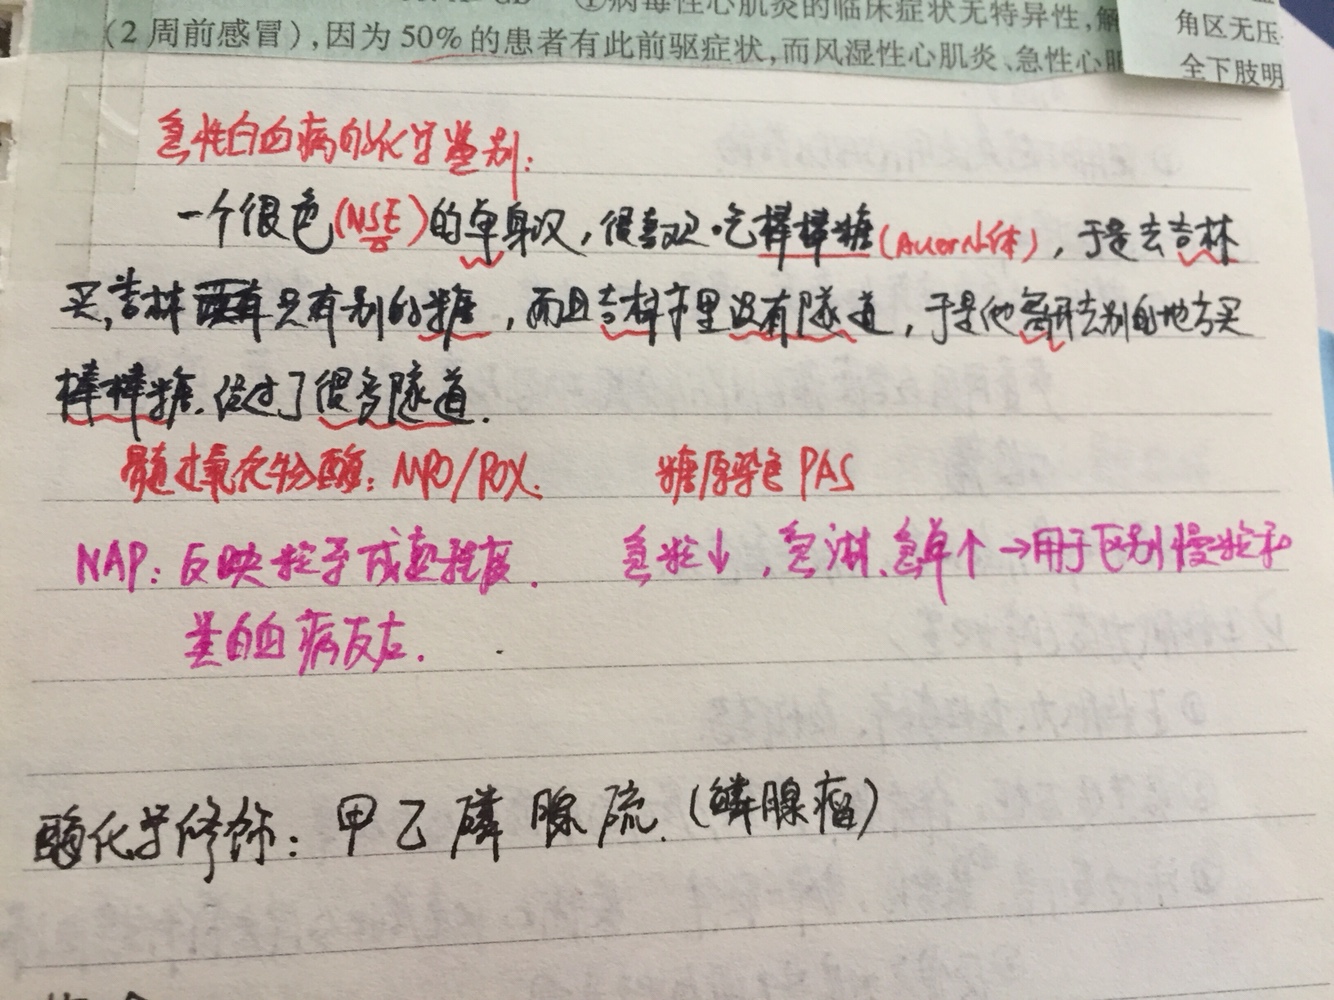 ①病毒性心肌炎的临床症状无特异性,解
(2 周前感冒),因为 50% 的患者有此前驱症状,而风湿性心肌炎、急性心肌
角区无压
全下肢明
急性白血病的化学鉴别:
一个很色(NSE)的单身汉,很喜欢吃棒棒糖(Auer小体),于是去吉林
买,吉林 只有别的糖,而且吉林市里没有隧道,于是他 去别的地方买
棒棒糖.经过了很多隧道.
髓过氧化物酶: MPO/POX. 糖原染色 PAS
NAP: 反映粒系成熟程度. 急粒↓,急淋、急单个→用于区别慢粒和
类白血病反应.
酶化学修饰: 甲乙磷腺硫.(鳞腺瘤)